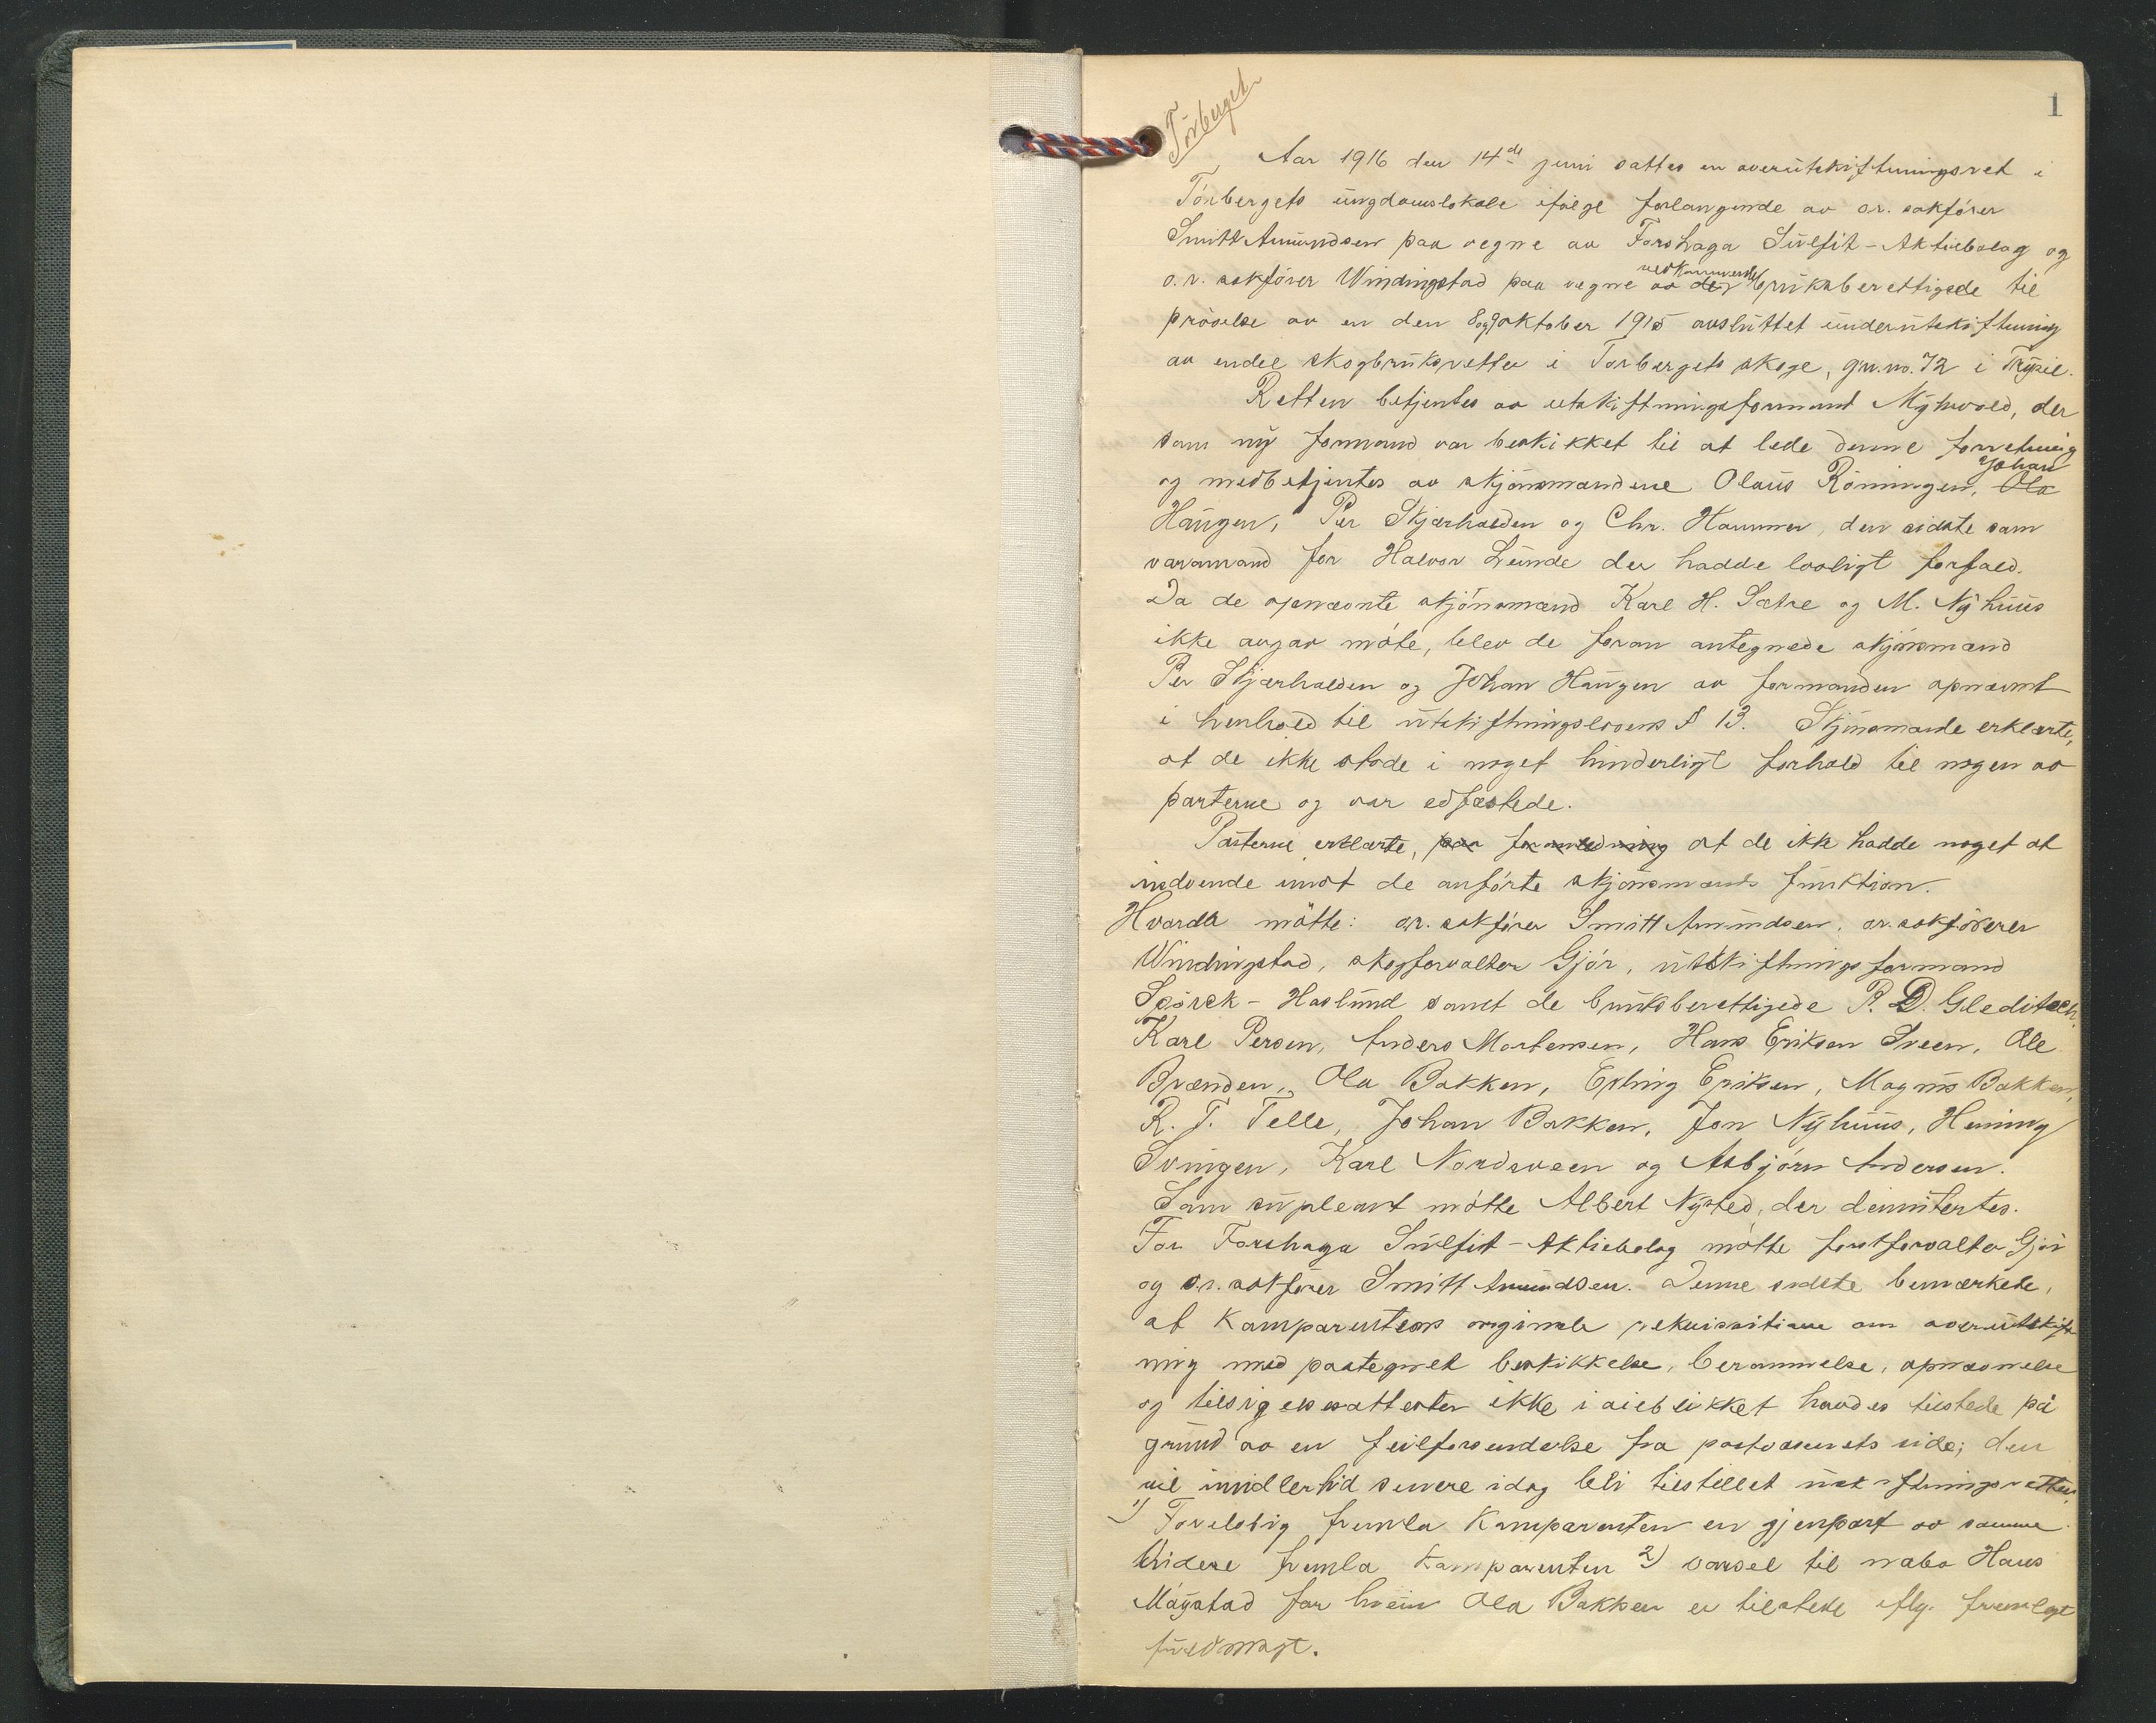 1
Törberget
Aar 1916 den 14de juni sattes en overutskiftningsret i
Törbergets ungdomslokale ifølge forlangende av o.r. sakfører
Smitt Amundsen paa vegne av Forshaga Sulfit-Aktiebolag og
o.r. sakfører Windingstad paa vegne av de vedkommende bruksberettigede til
prøvelse av en den 8 og 9 oktober 1915 avsluttet underutskiftning
av endel skogbruksretter i Törbergets skoge, gr.no. 72 i Trysil.
Retten betjentes av utskiftningsformand Myhrvold, der
som ny formand var beskikket til at lede denne forretning
og medbetjentes av skjönsmændene Olaus Röningen, Ola Johan
Haugen, Per Skjærholden og Chr. Hammer, den sidste som
varamand for Halvor Lunde der hadde lovligt forfald.
Da de opnævnte skjönsmænd Karl H. Sætre og M. Nyhuus
ikke avgav möte, blev de foran antegnede skjönsmænd
Per Skjærholden og Johan Haugen av formanden opnævnt
i henhold til utskiftningslovens § 13. Skjönsmænde erklærte,
at de ikke stode i noget hinderligt forhold til nogen av
parterne og var edfæstede.
Parterne erklærte, paa foranledning at de ikke hadde noget at
indvende imot de anförte skjönsmænds funktion.
Hvorda mötte: o.r. sakfører Smitt Amundsen, o.r. sakfører
Windingstad, skogforvalter Gjör, utskiftningsformand
Spörck-Haslund samt de bruksberettigede P. D. Gleditsch,
Karl Persen, Anders Mortensen, Hans Eriksen Sveen, Ole
Brænden, Ola Bakken, Erling Eriksen, Magnus Bakken,
R. T. Telle, Johan Bakken, Jon Nyhuus, Hening
Svingen, Karl Nordsveen og Asbjörn Andersen.
Som supleant mötte Albert Nysted, der dimitertes.
For Forshaga Sulfit-Aktiebolag mötte forstforvalter Gjör
og o.r. sakfører Smitt Amundsen. Denne sidste bemærkede,
at Komparentens originale rekvisitione om overutskift
ning med paategnet beskikkelse, berammelse, opnævnelse
og tilsigelsesattester ikke i öieblikket havdes tilstede på
grund av en feilforsendelse fra postvæsenets side; den
vil imidlertid senere idag bli tilstillet utskiftningsretten.
1) Foreløbig fremla Komparenten en gjenpart av samme.
Videre fremla Komparenten 2) varsel til nabo Hans
Möystad for hvem Ola Bakken er tilstede iflg. fremlagt
fuldmagt.